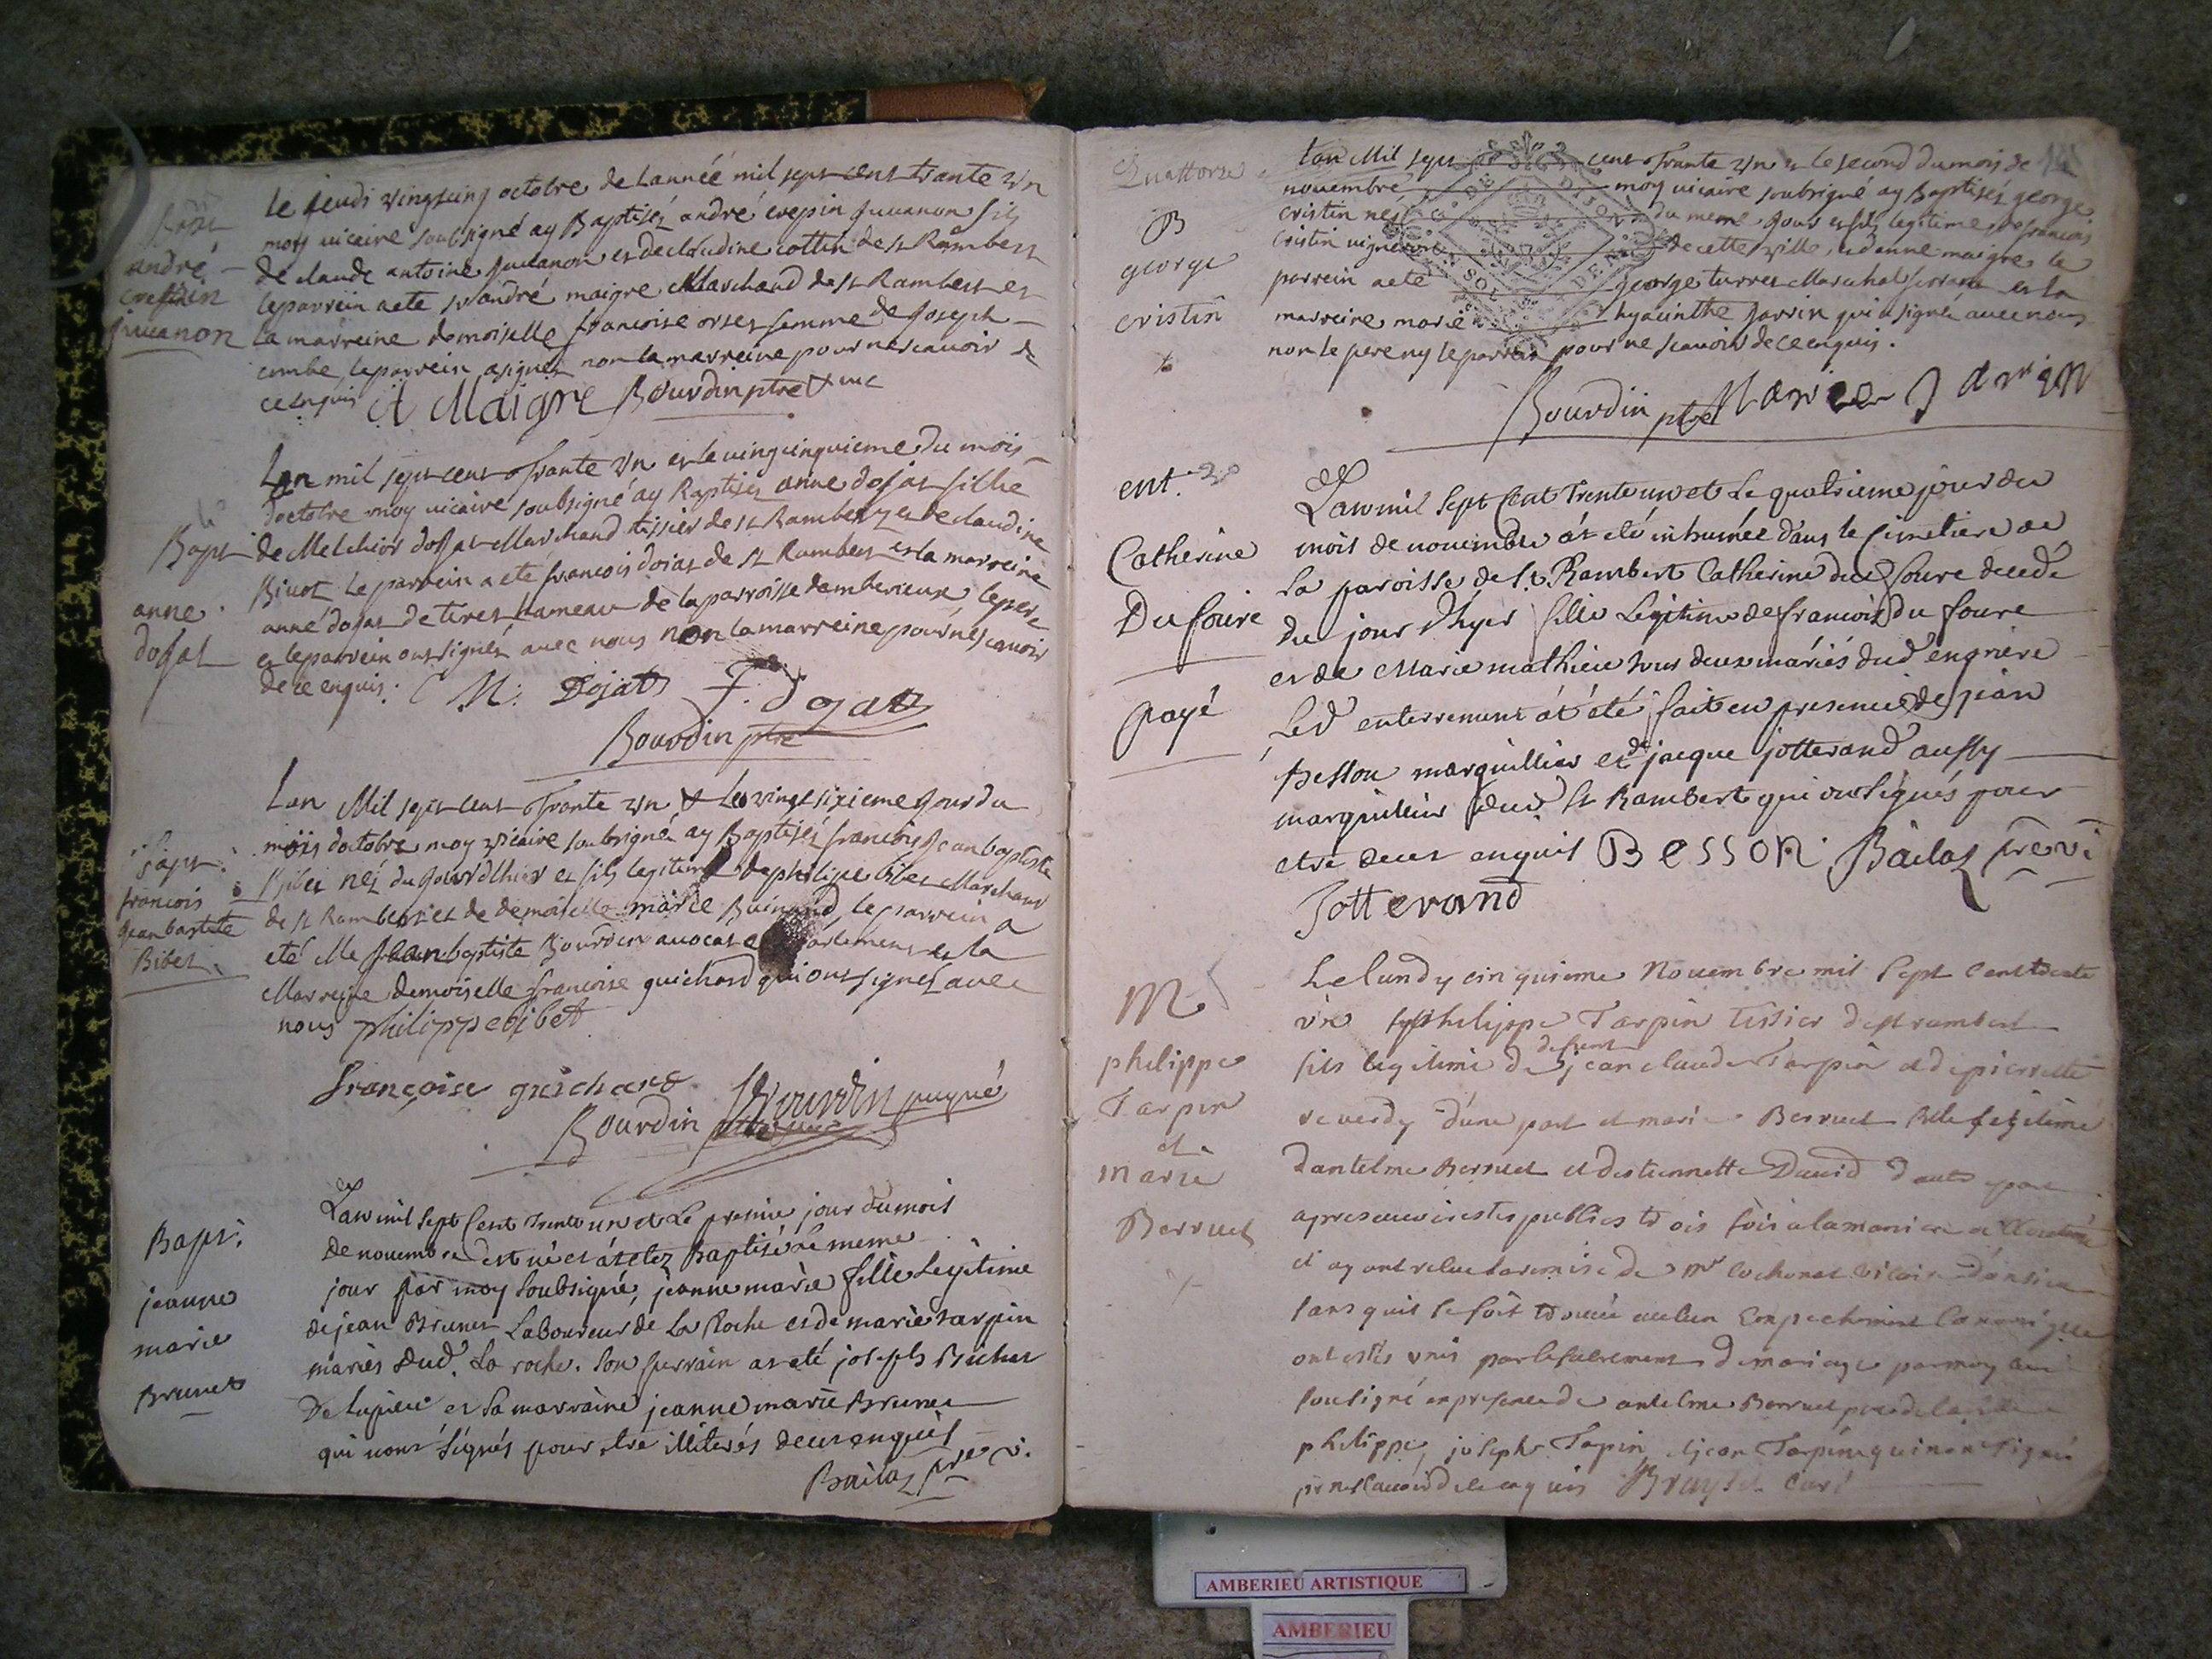 Bapt
andré
crespin
juuanon
le jeudi vingtcinq octobre de Lannéé mil sept cent trante vn
moy vicaire soubsigné ay Baptisés andré crepin juuanon fils
de claude antoine juuanon et de claudine cottin de st Rambert
le parrein a ete sr andré maigre Marchand de st Rambert et
la marreine demoiselle francoise orset femme de joseph
combe, le parrein a signer non la marreine pour ne scauoir de
ce enquis A Maigre Bourdin ptre & vic
Bapt
anne
dojat
Lan mil sept cent trante vn et le vingcinquieme du mois
doctobre moy vicaire soubsigné ay Baptisés anne dojat fillie
de Melchior dojat Marchand tissier de st Rambert et de claudine
Biuot le parrein a eté francois dojat de st Rambert et la marreine
anne dojat de tiret hameau de la parroisse damberieux le pere
et le parrein ont signés auec nous non la marreine pour ne scauoir
de ce enquis. M: Dojat F. dojat
Bourdin ptre
Bapt:
francois
jean batiste
Bibet
Lan Mil sept cent trante vn & le vingt sixieme jour du
mois doctobre moy vicaire soubsigné ay Baptisés francois jean baptiste
Bibet néz du jour dhier et fils legitime de philipe bibet Marchand
de st Rambert et de demoiselle marie Buinand, le parrein a
eté Me Jean baptiste Bourdin auocat en parlement et la
Marreine demoiselle francoise guichard qui ont signés auec
nous philippe bibet
françoise guichard
Bourdin ptre vic Bourdin puyné
Bapt:
jeanne
marie
Brunet
Lan mil sept Cent Trente un et Le premier jour du mois
de nouembre est né et at etez Baptisé le meme
jour par moy soubsigné, jeanne marie fille Legitime
de jean Brunet Laboureur de La Roche et de marie tarpin
mariés dud. La roche. son parrain at eté joseph Michet
de lupieu et sa marraine jeanne marie Brunet
qui nont signés pour etre illiterés de ce enquis
Bailat pre vi.
Quattorse
B
george
cristin
Lan Mil sept cent trante vn & le second du mois de
nouembre moy vicaire soubsigné ay Baptisés george
cristin nés du meme jour et fils legitime de francois
cristin vigneron de cette ville, et danne maigre le
parrein a eté george turrel Marechal ferrant et la
marreine marie hyacinthe jarrin qui a signée auec nous
non le pere ny le parrein pour ne scauoir de ce enquis.
Bourdin ptre Marie Jarrin
ent.
Catherine
Du foure
payé
Lan mil sept Cent Trente un et Le quatrieme jour du
mois de nouembre at eté inhumée dans le cimetiere de
La paroisse de st Rambert Catherine du foure decedé
du jour d'hyer fille Legitime de francois du foure
et de Marie mathieu tous deux mariés dud engriere
Led enterrement at été fait en presence de jean
Besson marguillier et de jacque jotterand aussy
marguillier dud st Rambert qui ont signés pour
etre de ce enquis Besson Bailat pre vi
Jotterand
M
philippe
Tarpin
et
marie
Berruet
Le lundy cinquieme Nouembre mil sept cent trente
vn philippe Tarpin tissier de st rambert
fils legitime de defunt jean claude Tarpin et de pierrette
reuerdy d'une part et marie Berruet fille legitime
dantelme Berruet et destiennette Dauid d'autre part
apres auoir estes publies trois fois a la maniere accoutumé
et ayant reçue la remise de mr cochonat vicaire
sans quil se soit trouué aucun Empechement Canonique
ont estés vnis par le sacrement de mariage par moy curé
soussigné en presence de antelme Berruet pere de la
philippe, joseph Tarpin et jean Tarpin qui nont signé
pr ne scauoir de ce enquis Curé
AMBERIEU ARTISTIQUE
AMBERIEU